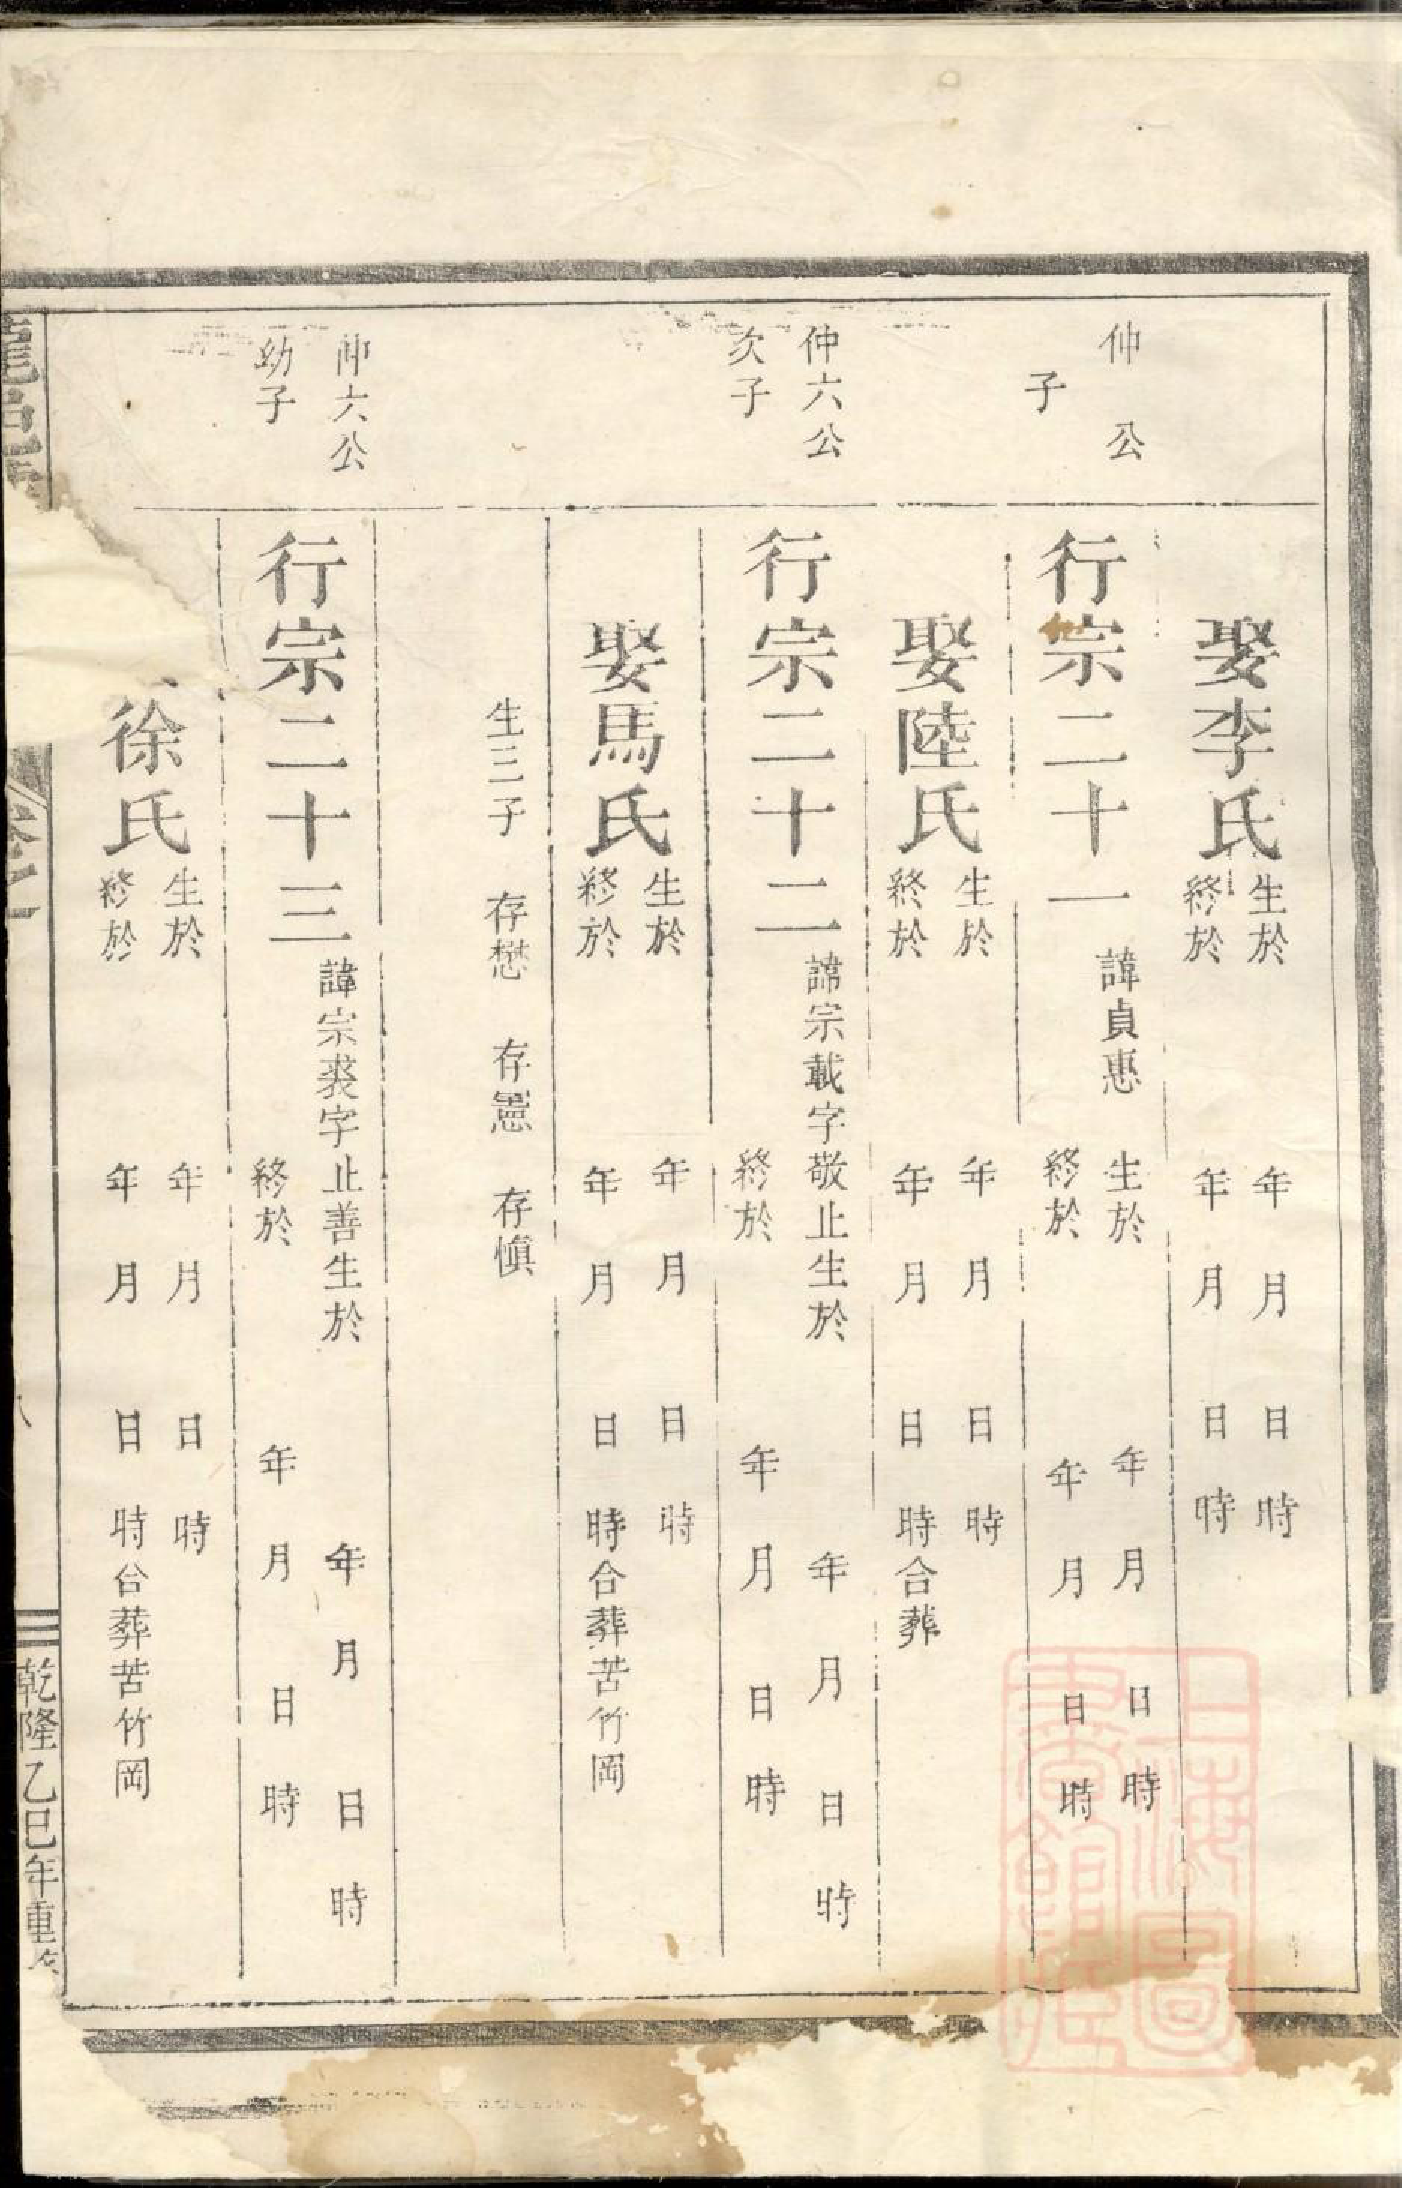 娶李氏
生於 年 月 日 時
終於 年 月 日 時
仲 公
子
行宗二十一
諱貞惠 生於 年 月 日 時
終於 年 月 日 時
娶陸氏
生於 年 月 日 時
終於 年 月 日 時合葬
仲六公
次子
行宗二十二
諱宗載字敬止生於 年 月 日 時
終於 年 月 日 時
娶馬氏
生於 年 月 日 時
終於 年 月 日 時合葬苦竹岡
生三子 存懋 存憲 存慎
仲六公
幼子
行宗二十三
諱宗裘字止善生於 年 月 日 時
終於 年 月 日 時
徐氏
生於 年 月 日 時
終於 年 月 日 時合葬苦竹岡
龍邑
卷之一
八
乾隆乙巳年重修
上海圖
書館藏